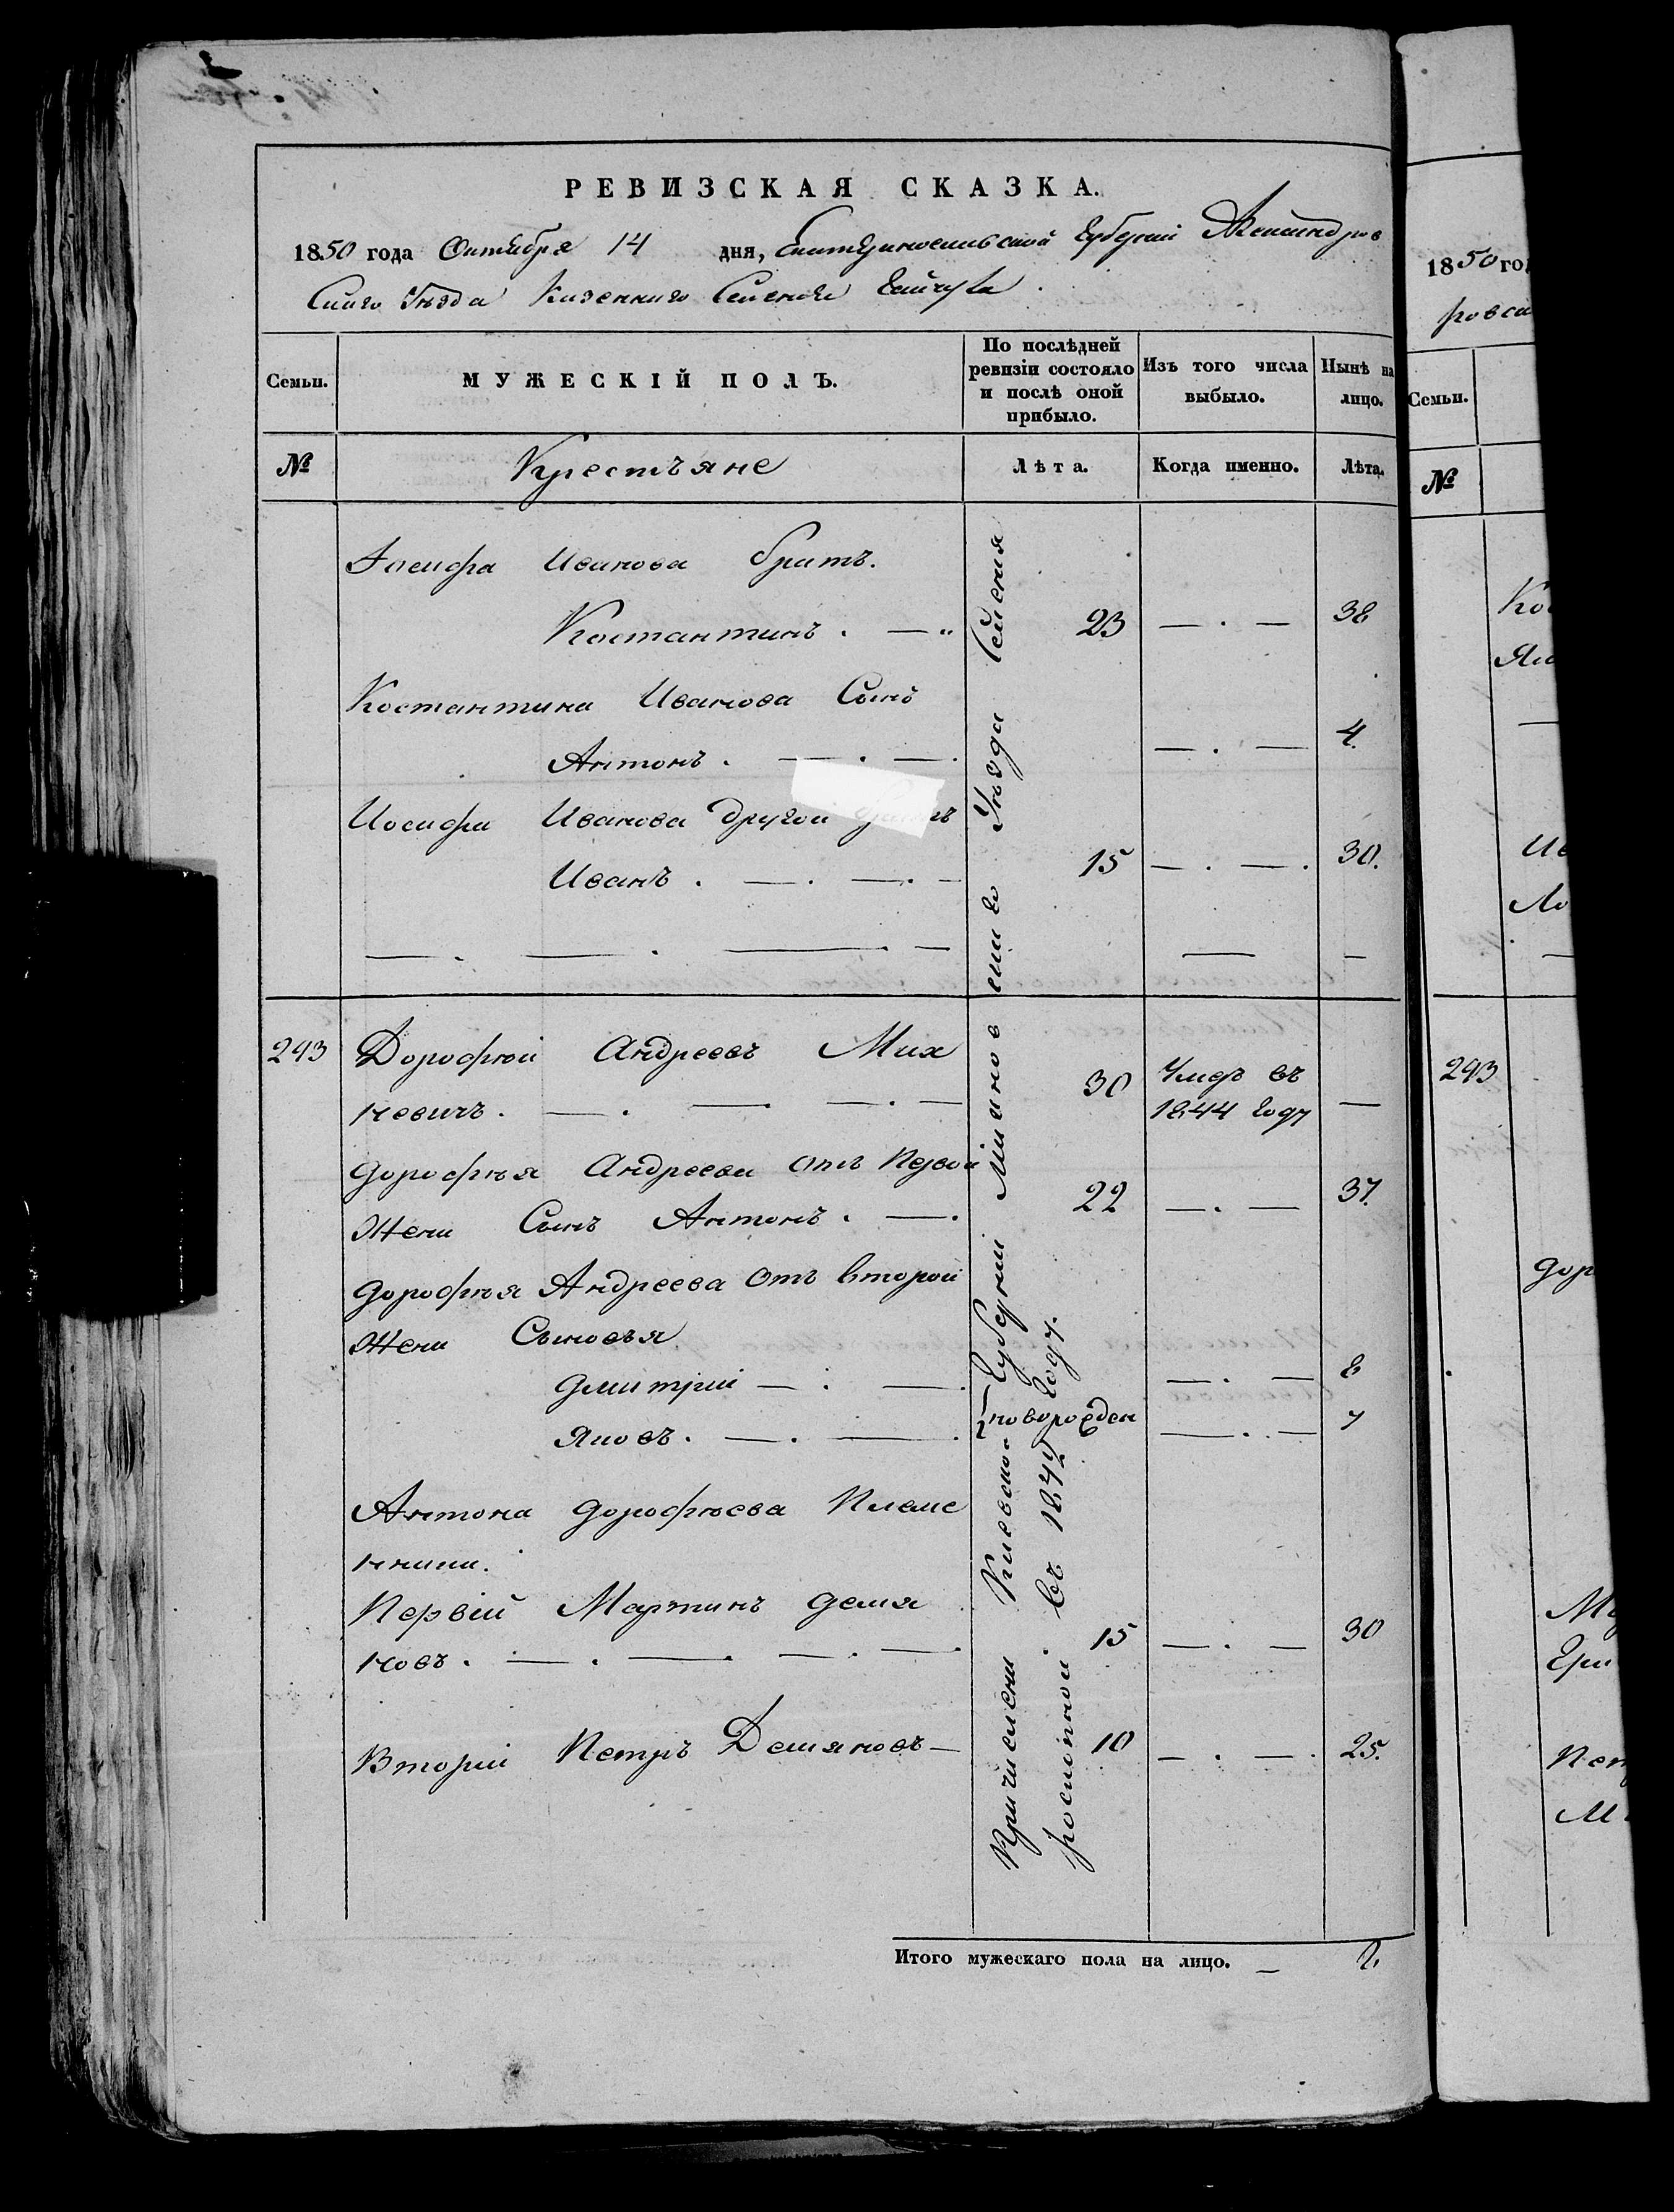 РЕВИЗСКАЯ СКАЗКА.
1850 года Октября 14 дня, Екатеринославской Губернии Александров
скаго Уѣзда Казеннаго Селения Гайчула
Семьи.
МУЖЕСКІЙ ПОЛЪ.
По послѣдней
ревизіи состояло
и послѣ оной
прибыло.
Изъ того числа
выбыло.
Нынѣ на
лицо.
№
Крестъяне
Лѣта.
Когда именно.
Лѣта.
Иосифа Иванова братъ.
Костантинъ . — 23 — . — 38
Костантина Иванова Сынъ
Антонъ . — . — . — . — 4.
Иосифа Иванова другой братъ
Иванъ . — . — . — 15 — . — . 30.
293 Дорофѣй Андреевъ Мих
невичъ . — . — . — 30 Умеръ въ
1844 году —
Дорофѣя Андреева отъ первой
жени Сынъ Антонъ . — . 22 — . — 37.
Дорофѣя Андреева отъ второй
жени Сыновья
Дмитрий — . — . — . — 8
новорожден
Яковъ . — . — . — . — 7
Антона Дорофѣева племе
нники.
Первій Мартинъ Демя
новъ . — . — . — . — 15 — . — 30
Вторій Петръ Демяновъ — 10 — . — . 25.
Причислени Киевской Губернии Липовецкаго Уѣзда Селения
Росишкой въ 1842 Году.
Итого мужескаго пола на лицо. —
1850 го
ровск
Семьи.
№
293